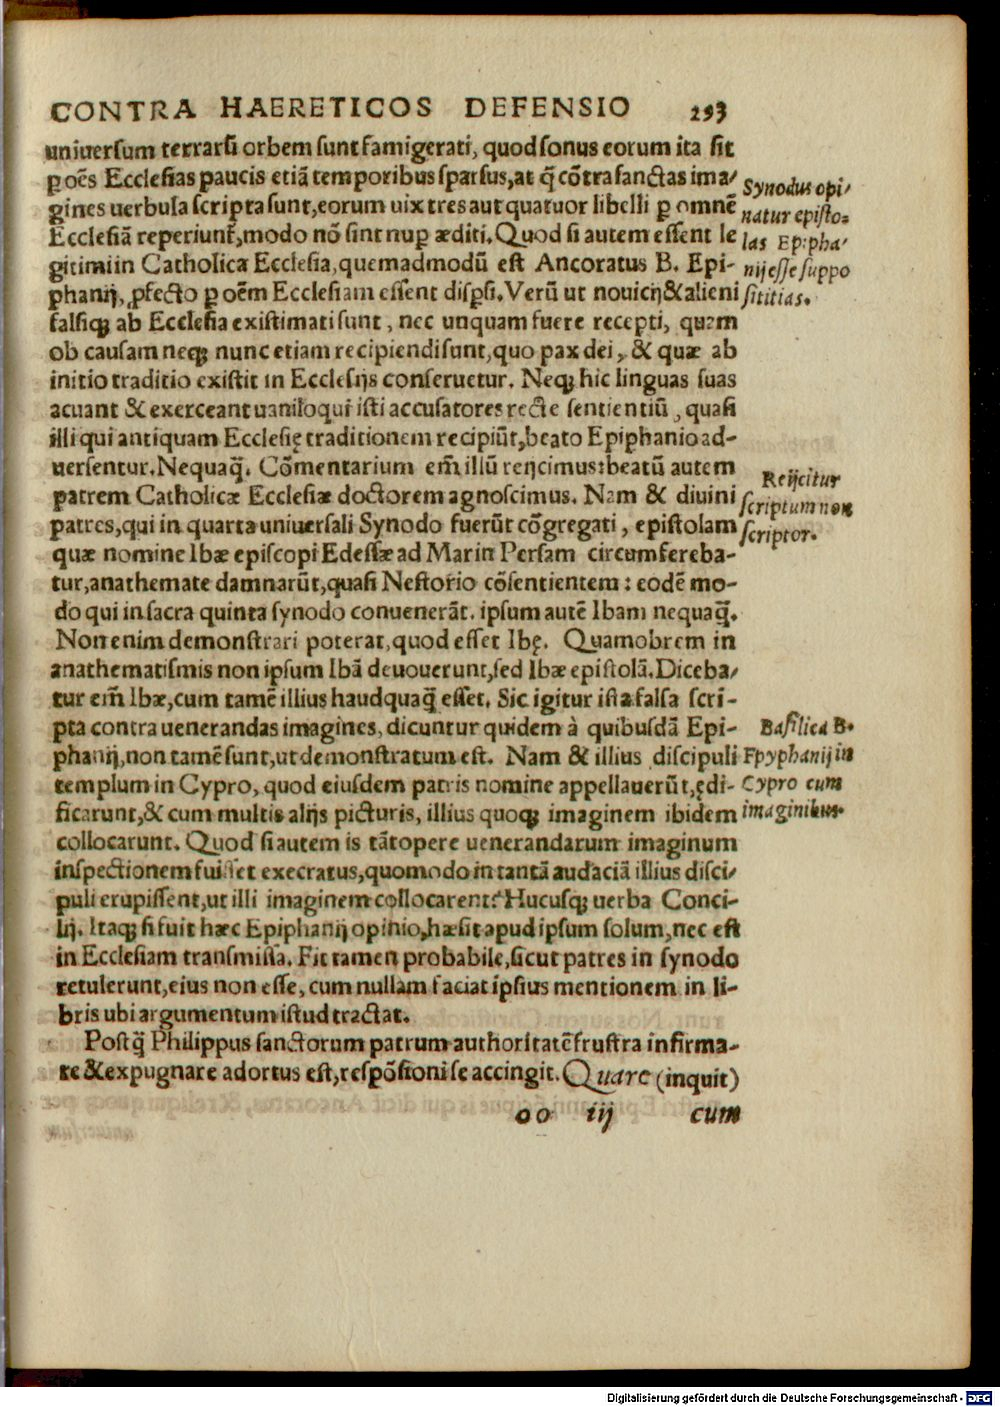 CONTRA HAERETICOS DEFENSIO 293
uniuersum terrarū orbem sunt famigerati, quod sonus eorum ita sit
ꝑ oēs Ecclesias paucis etiā temporibus sparsus, at q̄ cōtra sanctas ima/
gines uerbula scripta sunt, eorum uix tres aut quatuor libelli ꝑ omnē
Ecclesiā reperiunt᷑, modo nō sint nuꝑ æditi. Quod si autem essent le
gitimi in Catholica Ecclesia, quemadmodū est Ancoratus B. Epi-
phanij, ꝓfecto ꝑ oēm Ecclesiam essent disꝑsi. Verū ut nouicij & alieni
falsiqꝫ ab Ecclesia existimati sunt, nec unquam fuere recepti, quam
ob causam neqꝫ nunc etiam recipiendi sunt, quo pax dei, & quæ ab
initio traditio existit in Ecclesijs conseruetur. Neqꝫ hic linguas suas
acuant & exerceant uaniloqui isti accusatores recte sentientiū, quasi
illi qui antiquam Ecclesię traditionem recipiūt, beato Epiphanio ad-
uersentur. Nequaq̄. Cōmentarium em̄ illū reijcimus: beatū autem
patrem Catholicæ Ecclesiæ doctorem agnoscimus. Nam & diuini
patres, qui in quarta uniuersali Synodo fuerūt cōgregati, epistolam
quæ nomine Ibæ episcopi Edessæ ad Marin Persam circumfereba-
tur, anathemate damnarūt, quasi Nestorio cōsentientem: eodē mo-
do qui in sacra quinta synodo conuenerāt. ipsum autē Ibam nequaq̄.
Non enim demonstrari poterat, quod esset Ibę. Quamobrem in
anathematismis non ipsum Ibā deuouerunt, sed Ibæ epistolā. Diceba/
tur em̄ Ibæ, cum tamē illius haudquaq̄ esset. Sic igitur ista falsa scri-
pta contra uenerandas imagines, dicuntur quidem à quibusdā Epi-
phanij, non tamē sunt, ut demonstratum est. Nam & illius discipuli
templum in Cypro, quod eiusdem patris nomine appellauerūt, ędi-
ficarunt, & cum multis alijs picturis, illius quoqꝫ imaginem ibidem
collocarunt. Quod si autem is tātopere uenerandarum imaginum
inspectionem fuisset execratus, quomodo in tantā audaciā illius disci/
puli erupissent, ut illi imaginem collocarent? Hucusqꝫ uerba Conci-
lij. Itaqꝫ si fuit hæc Epiphanij opinio, hæsit apud ipsum solum, nec est
in Ecclesiam transmissa. Fit tamen probabile, sicut patres in synodo
retulerunt, eius non esse, cum nullam faciat ipsius mentionem in li-
bris ubi argumentum istud tractat.
Postq̄ Philippus sanctorum patrum authoritatē frustra infirma-
re & expugnare adortus est, respōsioni se accingit. Quare (inquit)
oo iij cum
Synodus opi/
natur episto=
las Epipha/
nij esse suppo
sititias.
Reijcitur
scriptum non
scriptor.
Basilica B.
Epyphanij in
Cypro cum
imaginibus.
Digitalisierung gefördert durch die Deutsche Forschungsgemeinschaft - DFG